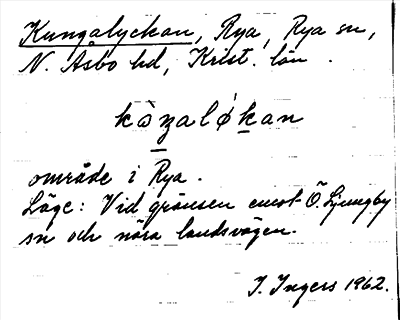 Kungalyckan, Rya, Rya sn,
N. Åsbo hd, Krist. län.
kòŋalǿkan
område i Rya.
Läge: Vid gränsen emot Ö. Ljungby
sn och nära landsvägen.
I. Ingers 1962.